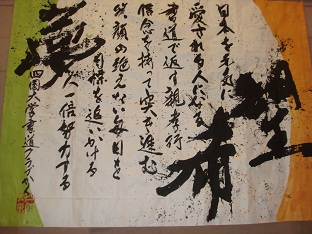 希望
日本を元気に
愛される人になる
書道で返す親孝行
信念を持って突き進む
笑顔の絶えない毎日を
目標を追いかける
人一倍努力する
夢
四国大学書道